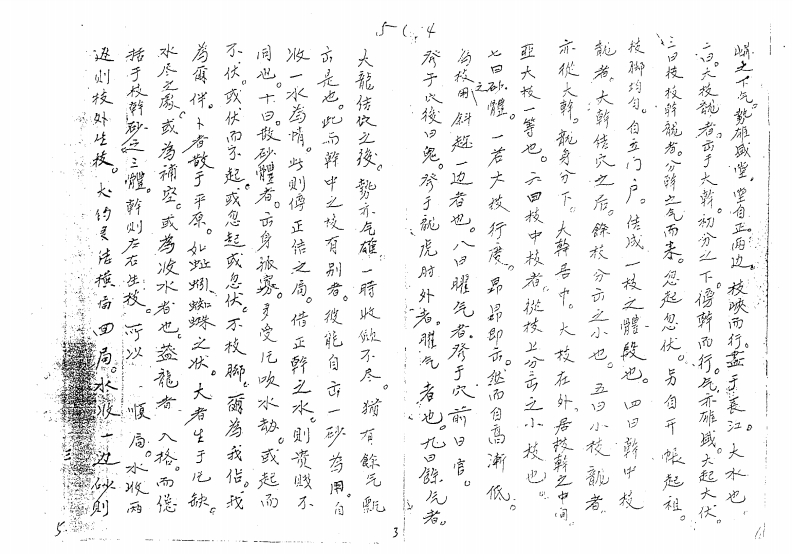 5 4
嶂之下气。勢雄盛堂。堂自正两边。枝暎而行。盡于長江。大水也
二曰。大枝龍者。出于大幹。初分之下。傍幹而行。气亦雄盛。大起大伏。
三曰枝幹龍者。分幹之气而来。忽起忽伏。另自开帳起祖。
枝腳均勻。自立门户。结成一枝之體段也。四曰幹中枝
龍者。大幹结穴之后。餘枝分出之小也。五曰小枝龍者
亦從大幹。龍身分下。大幹居中。大枝在外。居枝幹之中间
亚大枝一等也。六曰枝中枝者。從枝上分出之小枝也。
七曰砂之體。一若大枝行度。昂昂即出。然而自高漸低。
為枝用。斜趂一边者也。八曰曜气者。發于穴前曰官。
發于穴後曰鬼。發于龍虎肘外者。曜气者也。九曰餘气者。
大龍结穴之後。勢亦气雄一時收敛不尽。猶有餘气飄
出是也。此而幹中之枝有别者。彼能自出一砂為用自
收一水為情。此则傅正结之局。借正幹之水。则贵贱不
同也。十曰散砂體者。出身孤寡。多受风吹水劫。或起而
不伏。或伏而不起。或忽起或忽伏。不枝腳。爾為我佔。我
為爾伴。卜者散于平原。如蚯蚓蜘蛛之状。大者生于凡缺。
水尽之處。或為補空。或為收水者也。盖龍者 入格。而總
括于枝幹砂之三體。幹则左右生枝。可以 順局。水收两
边则枝外生枝。大约灵结横局回局。水收一边砂则
三
5. 3